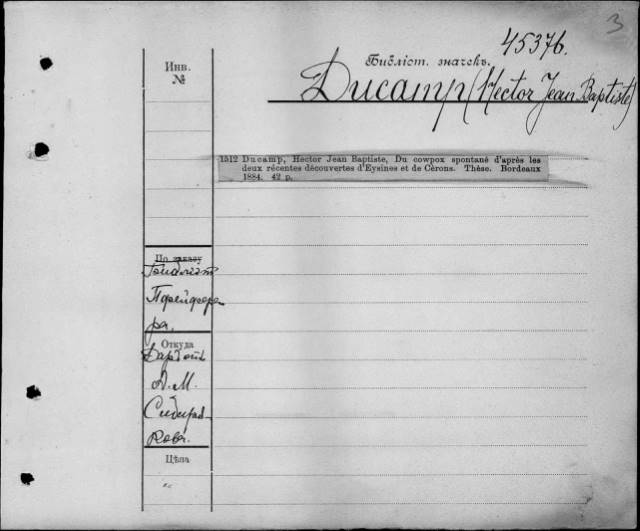 3
45376.
Библіот. значекъ.
Инв.
№
Ducamp (Hector Jean Baptiste)
1512 Ducamp, Hector Jean Baptiste, Du cowpox spontané d'après les
deux récentes découvertes d'Eysines et de Cérons. Thèse. Bordeaux
1884. 42 p.
По заказу
Пфейффера
ра.
Откуда
А. М.
Цѣна
"